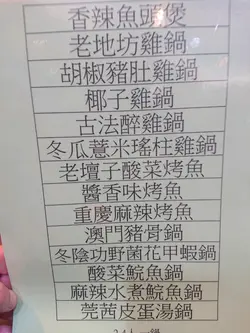 香辣魚頭煲
老地坊雞鍋
胡椒豬肚雞鍋
椰子雞鍋
古法醉雞鍋
冬瓜薏米瑤柱雞鍋
老壇子酸菜烤魚
醬香味烤魚
重慶麻辣烤魚
澳門豬骨鍋
冬陰功野菌花甲蝦鍋
酸菜鯇魚鍋
麻辣水煮鯇魚鍋
莞茜皮蛋湯鍋